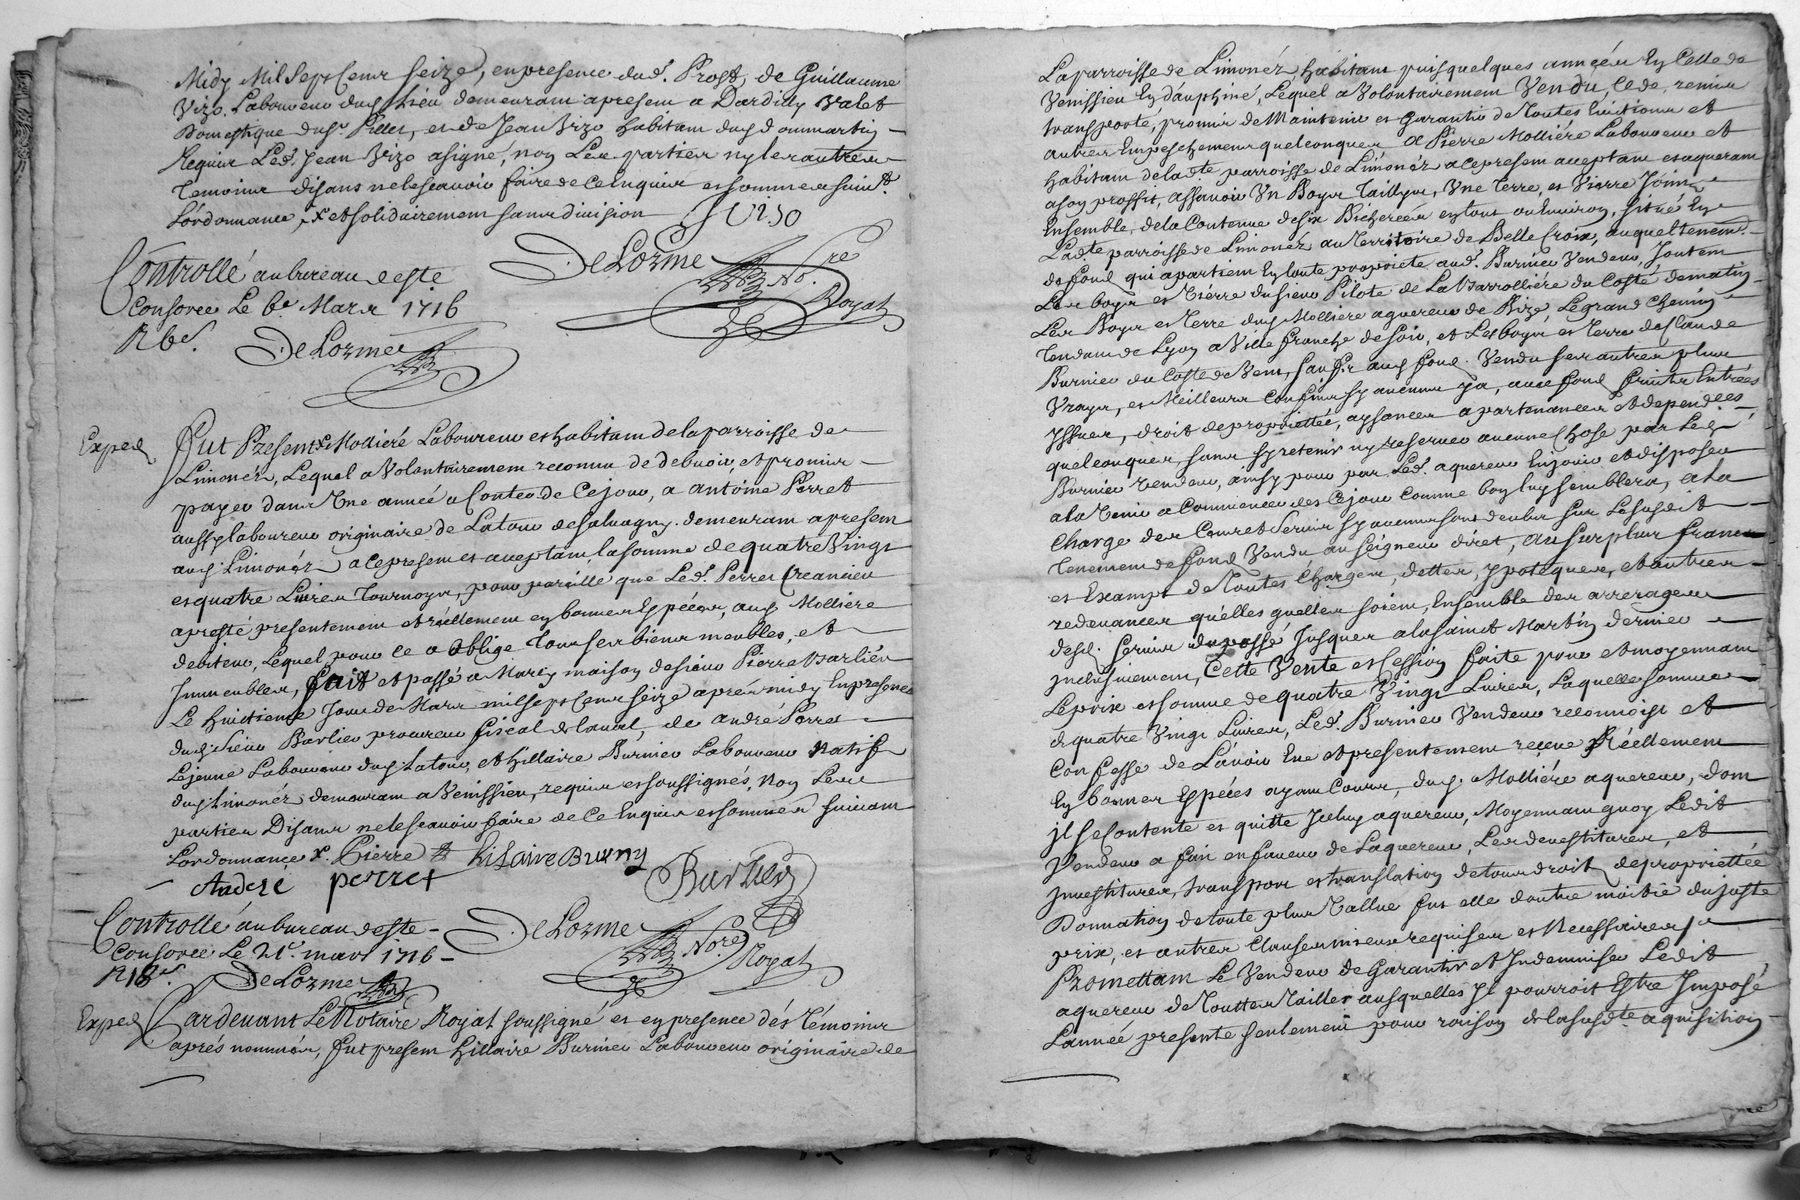 Midy Mil Sept Cent seize, en presence dud. Prost, de Guillaume
Vizo Laboureur dud lieu demeurant apresent a Dardilly valet
Domestique dud sr Pillet, et de Jean Vizo habitant dud dommartin
Requis Led. Jean Vizo a signé, non Les parties ny les autres
Temoins disans ne le scavoir faire de ce Enquis et sommes suivt.
L'ordonnance, x et solidairement sans division J Vizo
Controllé au bureau de ste
Consorce Le 6e Mars 1716
R 6s. DeLorme
DeLorme Nore Royal
Exped. Fut Present x Mollieré Laboureur et habitant de la parroisse de
Limonés, Lequel a Volontairement reconnu de debvoir, et promis
payer dans Une année a Conter de Ce jour, a antoine Perret
aussy laboureur originaire de Latour de salvagny demeurant apresent
aud. Limonés, a ce present et aceptant, la somme de quatre Vingt
et quatre Livres Tournois, pour pareille que Led. Perret Creancier
a presté presentement et réellement en bonnes Espéces, aud. Molliere
debiteur, Lequel pour ce a oblige Tous ses biens meubles, et
Immeubles, fait et passé a Marcy maison de sieur Pierre Barlier
Le huictieme Jour de Mars mil sept cent seize aprés midy En presence
dud. sieur Barlier procureur fiscal de laval, de andré Perret
Lejeune Laboureur dud Latour, et hillaire Burnier Laboureur natif
dud Limonés demeurant a Venissieu, requis et soussignés, Non Les
parties Disans ne le scavoir faire de Ce Enquis et sommés suivant
L'ordonnance x. Pierre hilaire Burny
André perret Barlier
Controllé au bureau de ste
Consorce Le 21e mars 1716
R 18s. DeLorme
DeLorme Nore Royal
Exped. Pardevant Le Notaire Royal soussigné et en presence dés Témoins
aprés nommés, fut present hillaire Burnier Laboureur originaire de
La parroisse de Limonés, habitant puis quelques années En Celle de
Venissieu En dauphiné, Lequel a Volontairement Vendu, Cede, remis
transporté, promis de Maintenir et garantir de Toutes Evictions et
autres Empeschements quelconques a Pierre Mollieré Laboureur et
habitant de lad.te parroisse de Limonés a ce present aceptant et aquerant
a son proffit, assavoir Un Boys Taillys, Une Terre, et Pierre Joints
Ensemble, de la Contenue de six Bicherées en tout ou Environ, situé En
Lad.te parroisse de Limonés au Territoire de Belle Croix, auquel tenemt.
de fond qui apartient En toute proprieté aud. Burnier Vendeur, Joutent
Les boys et Tiérre du sieur Pilote de La Barrolliére du Costé de matin
Les Boys et Terre dud Molliere aquereur de Bize, Le grand Chemin
Tendant de Lyon a Villefranche de soir, et Les boys et Terre de Claude
Burnier du Coste de Vent, sauf aud. fond Vendu ses autres plus
Vrays, et Meilleurs Confins sy aucuns ya, avec fond fruits Entrées
Issues, droit de proprietté, aysances apartenances et dependces
quelconques sans sy retenir ny reserver aucune Chose par Led.
Burnier vendeur, ainsy pour par Led. aquereur En jouir et disposer
a la Venir a Commencer dés Cejour comme bon luy semblera, a la
Charge des Cens et servis sy aucuns sont deubs sur Lesusdit
Tenement de fond Vendu au seigneur diret, au surplus franc
et Exampt de Toutes Charges, dettes, ypoteques, et autres
redevances qu'elles quelles soient, Ensemble des arrerages
desd. servis du passé Jusques a la saint Martin dernier
Inclusivement, Cette Vente et Cession faite pour et moyennant
Le prix et somme de quatre Vingt Livres, Laquelle somme
de quatre Vingt Livres, Led. Burnier Vendeur reconnoist et
Confesse de L'avoir Eue et presentement reçeue Réellement
En bonnes Espéces ayant Cours, dud. Molliére aquereur, dont
il se Contente et quitte Iceluy aquereur, Moyennant quoy Ledit
Vendeur a fait en faveur de Laquereur, Les devestitures, et
Investitures, transport et translation de tous droit de proprietteé
Donnation de toute plus Vallue fut elle d'outre moitié du juste
prix, et autres Clauses mieux requises et Necessaires
Promettant Le Vendeur de Garantir et Indemniser Ledit
aquereur de Touttes Tailles ausquelles Il pourroit Estre Imposé
L'année presente seulement pour raison de la susd.te aquisition